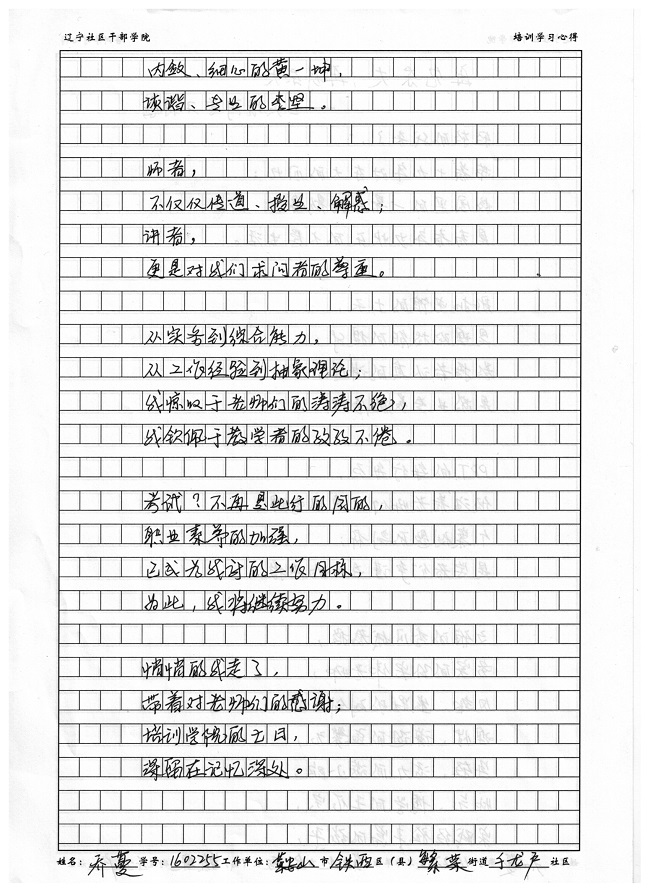 辽宁社区干部学院 培训学习心得
内敛、细心的黄一坤，
诙谐、专业的李坚。
师者，
不仅仅传道、授业、解惑；
讲者，
更是对我们求问者的尊重。
从实务到综合能力，
从工作经验到抽象理论；
我惊叹于老师们的涛涛不绝，
我钦佩于教学者的孜孜不倦。
考试？不再是此行的目的，
职业素养的加强，
已成为我讨的工作目标，
为此，我将继续努力。
悄悄的我走了，
带着对老师们的感谢；
培训学院的七日，
深留在记忆深处。
姓名：乔蔓 学号：1602255 工作单位：鞍山市铁西区（县）繁荣街道千龙户社区